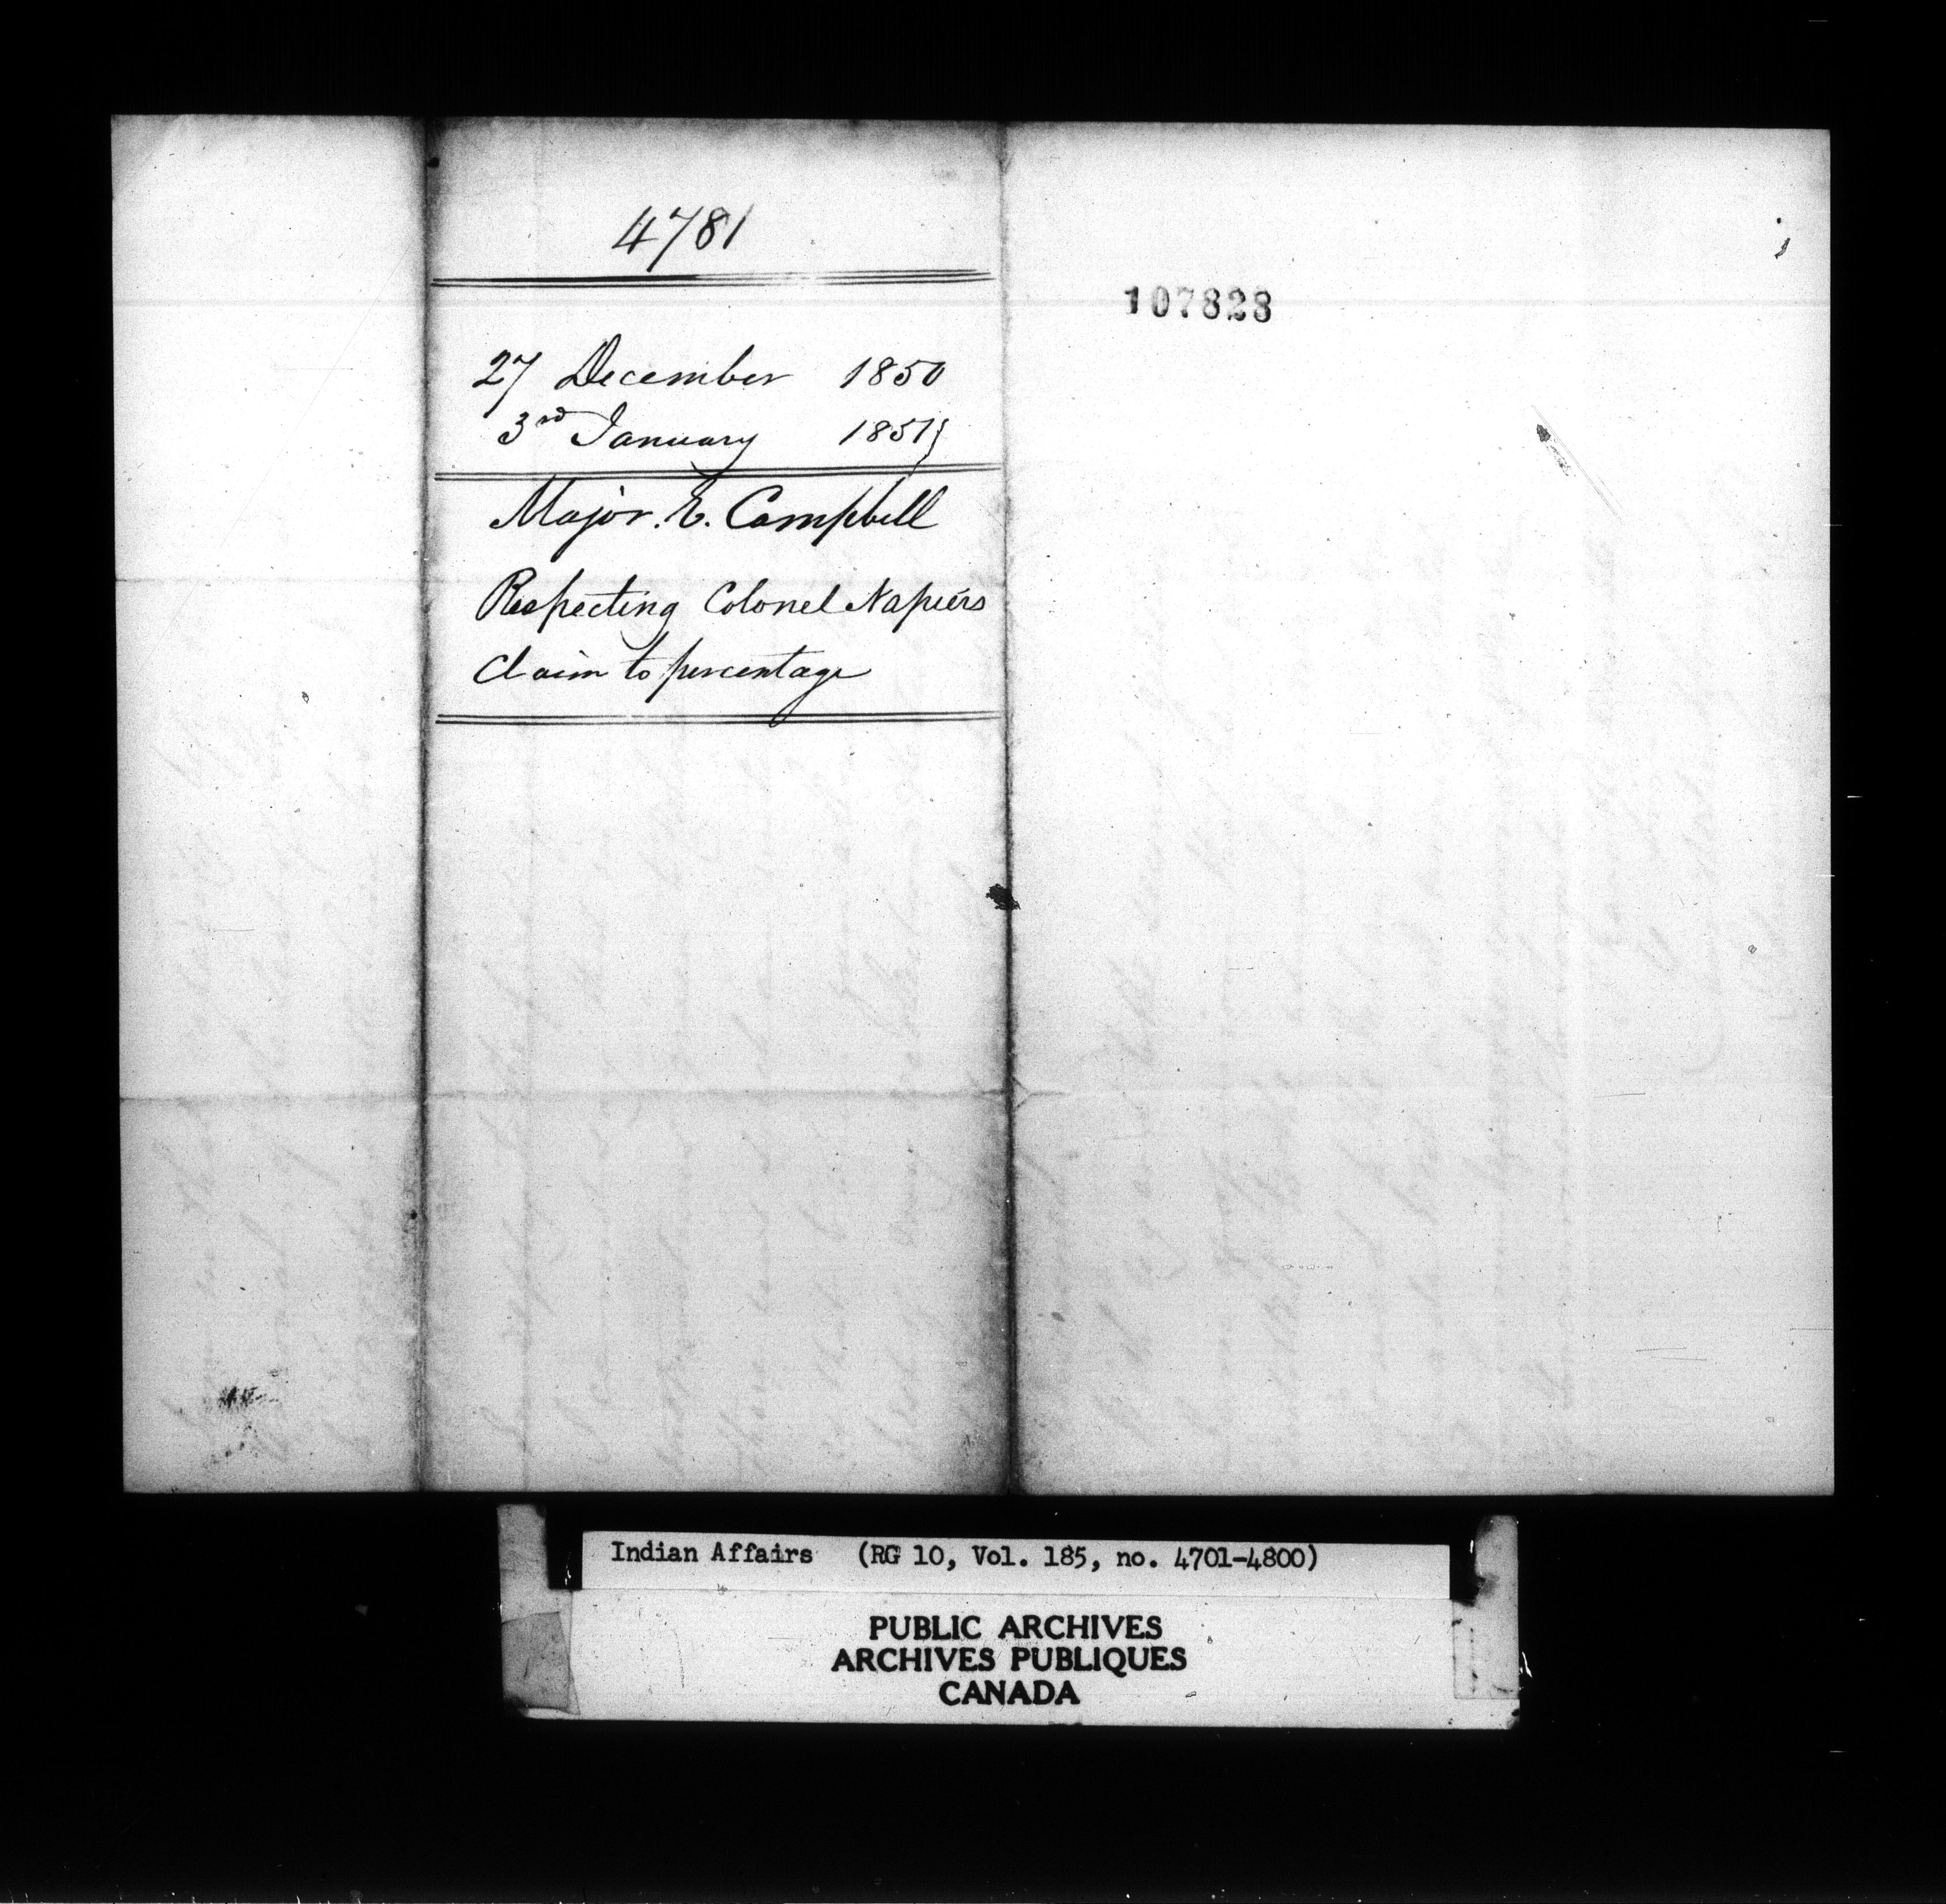 4781
107828
27 December 1850
3rd January 1851}
Major. E. Campbell
Respecting Colonel Napiers
Claim to percentage
Indian Affairs (RG 10, Vol. 185, no. 4701-4800)
PUBLIC ARCHIVES
ARCHIVES PUBLIQUES
CANADA